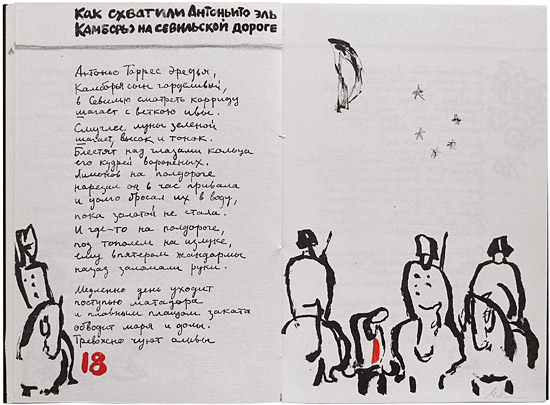 Как схватили Антоньито эль
Камборьо на севильской дороге
Антонио Торрес Эредья,
Камборья сын горделивый,
в Севилью смотреть корриду
шагает с веткою ивы.
Смуглее луны зеленой
шагает, высок и тонок.
Блестят над глазами кольца
его кудрей вороненых.
Лимонов на полдороге
нарезал он в час привала
и долго бросал их в воду,
пока золотой не стала.
И где-то на полдороге,
под тополем на излуке,
ему впятером жандармы
назад заломали руки.
Медленно день уходит
поступью матадора
и плавным плащом заката
обводит моря и долы.
Тревожно чуют оливы
18